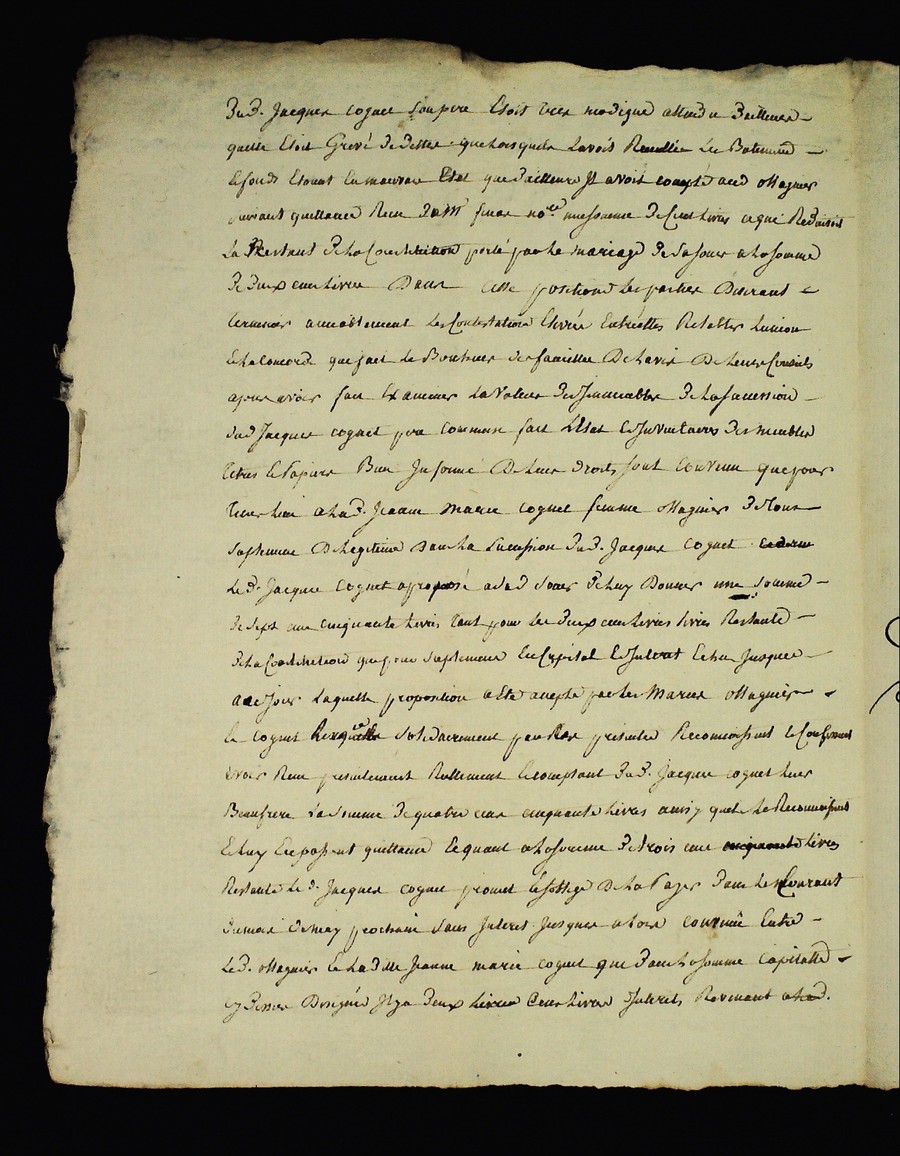 dud. Jacques cognet son pere Etoit tres modique attendu d'ailleurs
quelle Etoit Grevé de dettes que lorsquela lavoit Recueillie Les Batiments
Le fonds Etoient En mauvais Etat que d'ailleurs Il avoit compté aud Magnier
suivant quittance Recu Me no.re une somme de Cent livres ce qui Reduisoit
La Restant de La Constitution porté par Le mariage de sa soeur a La somme
de deux cent livres Dans cette position Les parties Desirant
terminer amiablement Les Contestations Elevées Entr'elles Retablir L'union
Et la concorde qui fait Le Bonheur des familles De L'avis De Leurs Conseils
apres avoir fait Examiner La Valeur des Immeubles De La succession
dud Jacques cognet pere comme fait L'Etat Et Inventaire des meubles
titres Et Papiers Bien Informé De Leurs droits sont convenu que pour
tenir Lieu a Lad. Jeanne Marie cognet femme Magnier De tous
suplement De Legitime Dans La Succession dud. Jacques cognet
Le d. Jacques Cognet a proposé a sad soeur De Luy Donner une somme
de sept cent cinquante livres tant pour Les deux cent livres livres Restante
De La Constitution que pour suplement En Capital Et Interet Echus Jusques
a ce Jour Laquelle proposition a Eté accepté par Les Mariés Magnier
Et cognet Lesquels solidairement par Les presentes Reconnoissent Et Confessent
avoir Recu presentement Rellement Et comptant dud. Jacques cognet Leur
Beaufrere La somme De quatre cent cinquante livres ainsy quels Le Reconnoissent
Et Luy En passent quittance Et quant a La somme De trois cent livres
Restante Le d. Jacques cognet promet Et s'oblige De La Payer dans Le Courant
du mois De may prochain sans Interet Jusques a Lors convenu Entre
Le d. Magnier Et La ditte Jeanne marie cognet que dans La somme Capitalle
cy dessus Designée Il y a deux Cent livres d'Interets Revenant a Lad.